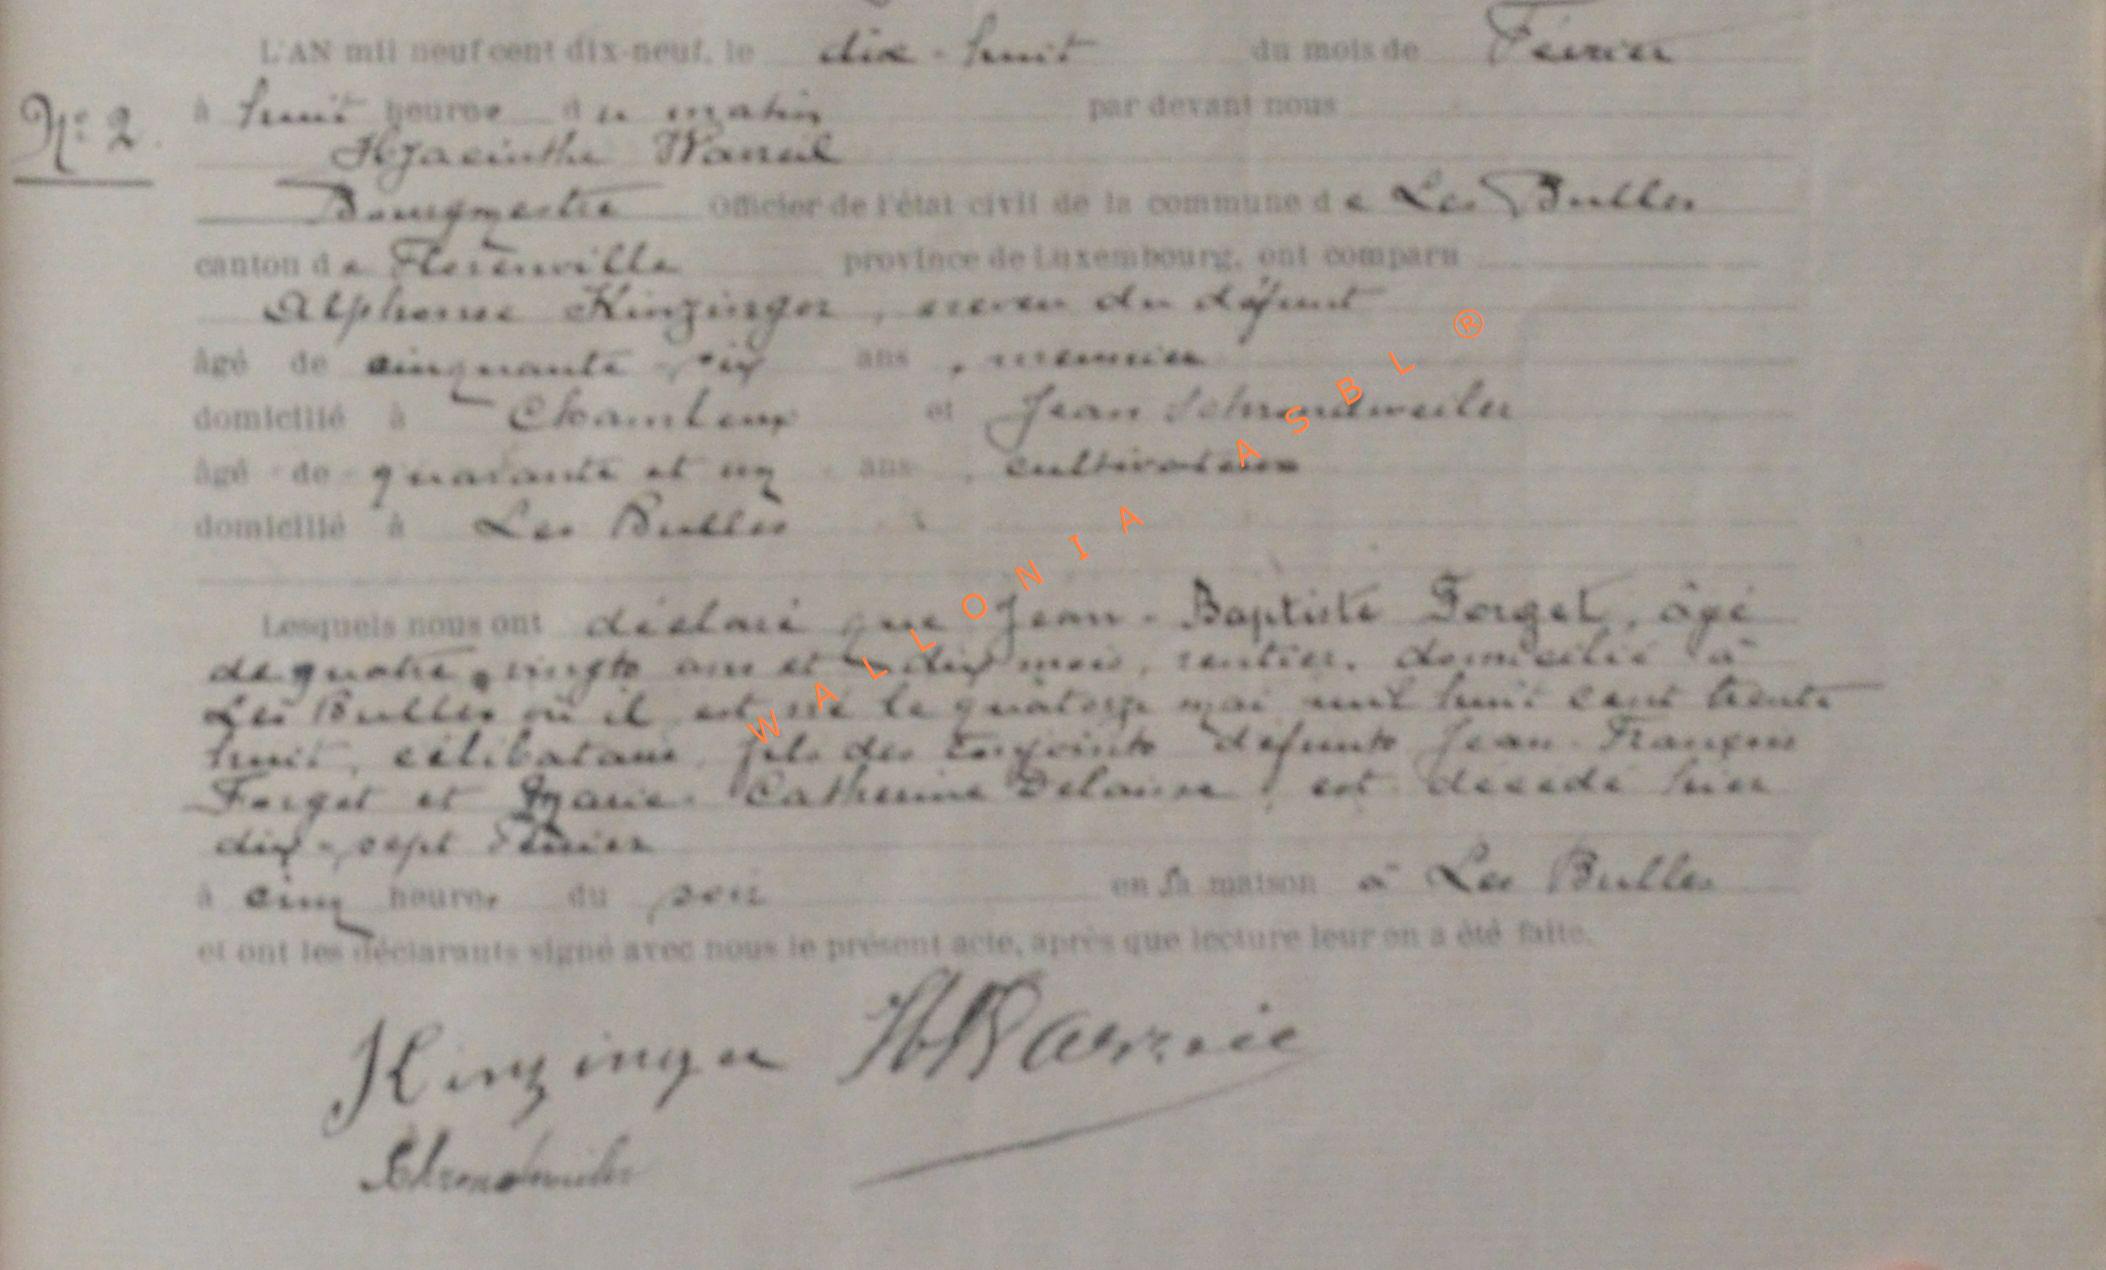 L'AN mil neuf cent dix-neuf, le dix-huit du mois de Février
N° 2.
à huit heures du matin par devant nous
Hyacinthe
Bourgmestre Officier de l'état civil de la commune de Les Bulles
canton de Florenville province de Luxembourg, ont comparu
Alphonse Kinzinger, neveu du défunt
âgé de cinquante-six ans, meunier
domicilié à Chamleux et Jean Schrondweiler
âgé de quarante et un ans, cultivateur
domicilié à Les Bulles
Lesquels nous ont déclaré que Jean-Baptiste Forget, âgé
de quatre-vingts ans et dix mois, rentier, domicilié à
Les Bulles où il est né le quatorze mai mil huit cent trente
huit, célibataire, fils des conjoints défunts Jean-François
Forget et Marie-Catherine, est décédé hier
dix-sept Février
à cinq heures du soir en sa maison à Les Bulles
et ont les déclarants signé avec nous le présent acte, après que lecture leur en a été faite.
Kinzinger
Schrondweiler
WALLONIA ASBL ®